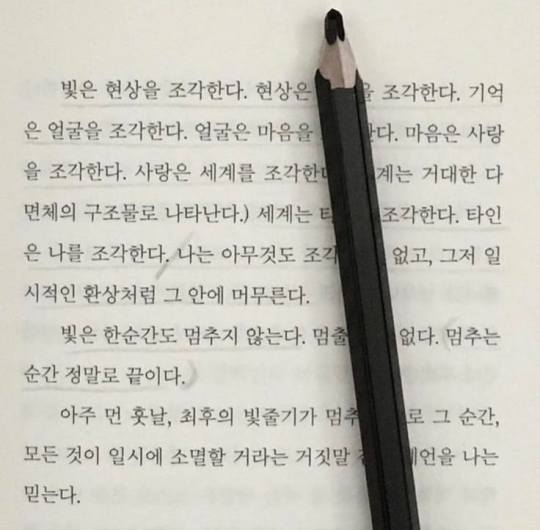 빛은 현상을 조각한다. 현상은 을 조각한다. 기억
은 얼굴을 조각한다. 얼굴은 마음을 한다. 마음은 사랑
을 조각한다. 사랑은 세계를 조각한 계는 거대한 다
면체의 구조물로 나타난다.) 세계는 타 조각한다. 타인
은 나를 조각한다. 나는 아무것도 조각 없고, 그저 일
시적인 환상처럼 그 안에 머무른다.
빛은 한순간도 멈추지 않는다. 멈출 없다. 멈추는
순간 정말로 끝이다.
아주 먼 훗날, 최후의 빛줄기가 멈추 로 그 순간,
모든 것이 일시에 소멸할 거라는 거짓말 예언을 나는
믿는다.